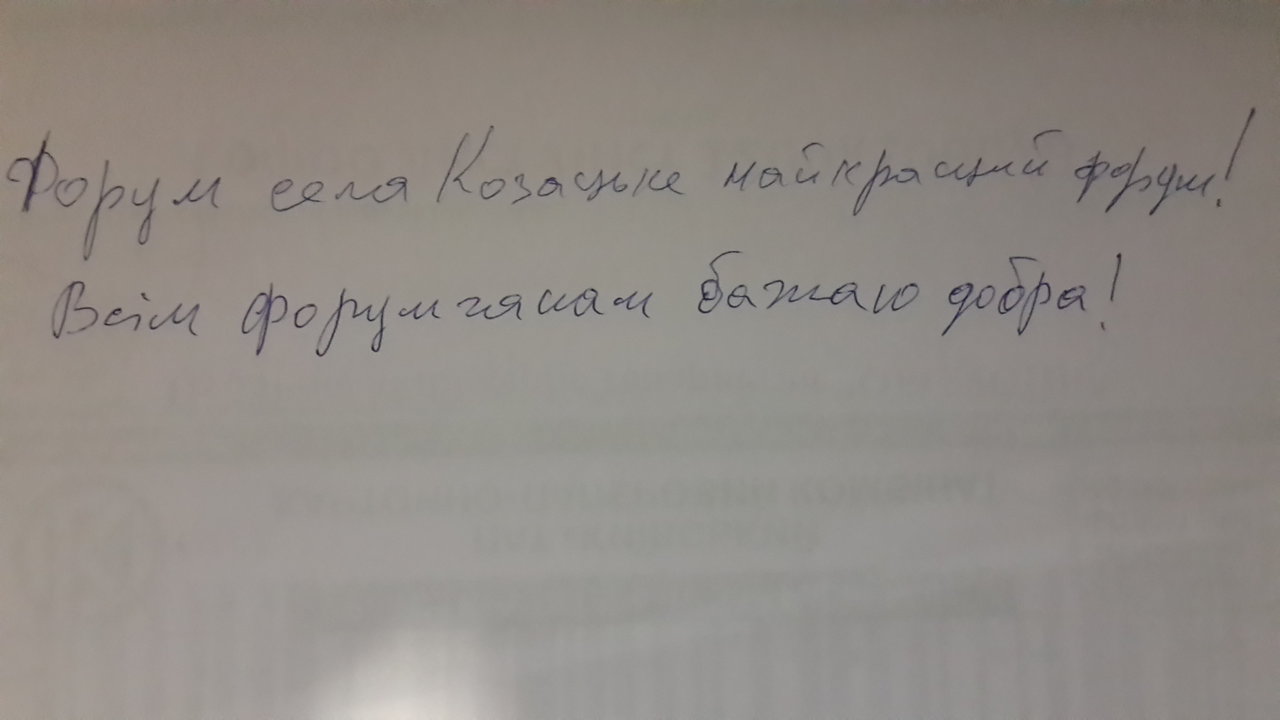 Форум села Козацьке найкращий форум!
Всім форумчянам бажаю добра!